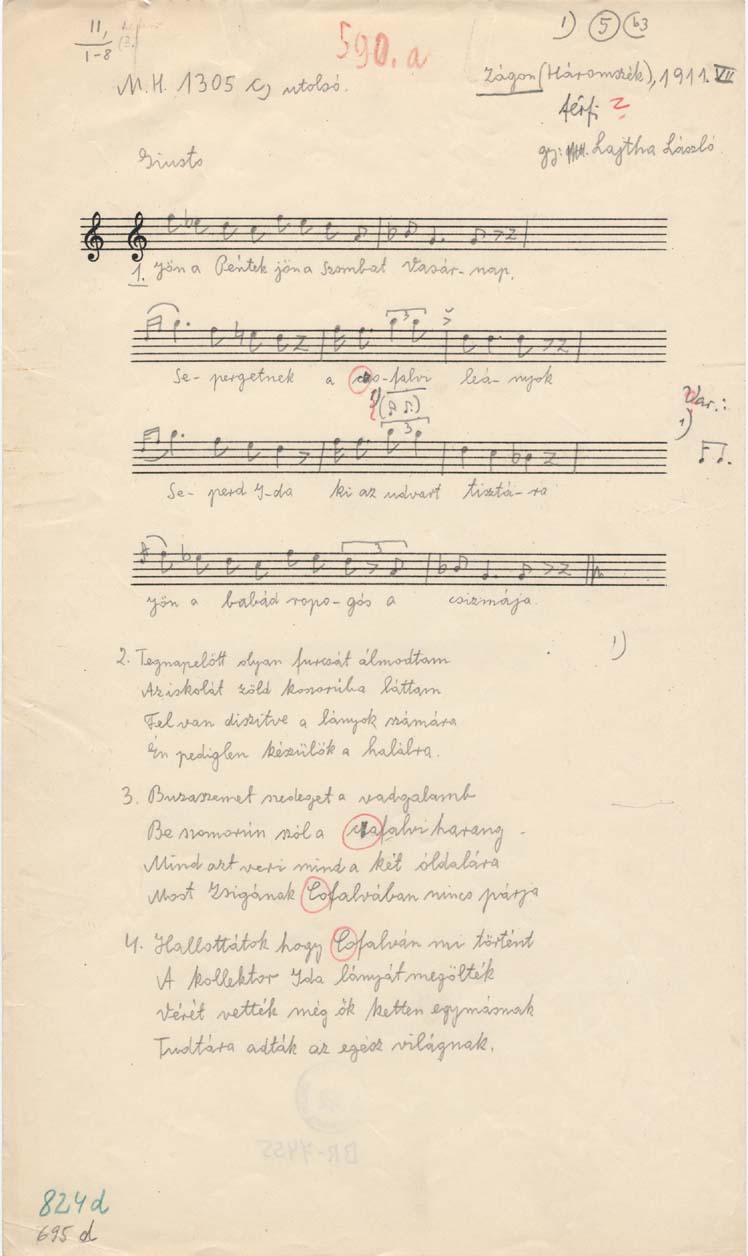 II,
1-8
1) 5 b3
590. a
M.H. 1305 c, utolsó.
Zágon (Háromszék), 1911. VII
férfi
gy: Lajtha László
Giusto
1. Jön a Péntek jön a Szombat Vasár-nap,
Se-pergetnek a falvi leá-nyok
Var.:
1)
Se-perd I-da ki az udvart tisztá-ra
jön a babád ropo-gós a csizmája.
1)
2. Tegnapelőtt olyan furcsát álmodtam
Az iskolát zöld koszorúba láttam
Fel van diszitve a lányok számára
Én pediglen készülök a halálra.
3. Buzaszemet szedeget a vadgalamb
Be szomorún szól a falvi harang
Mind azt veri mind a két óldalára
Most Zsigának Cofalvában nincs párja
4. Hallottátok hogy Cofalván mi történt
A kollektor Ida lányát megölték
Vérét vették még ők ketten egymásnak
Tudtára adták az egész világnak.
BR-7455
824d
695 d